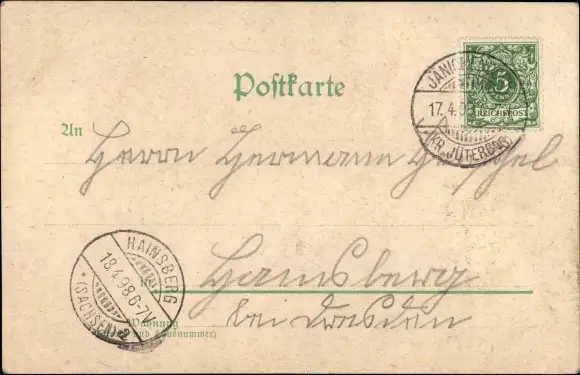 5
REICHSPOST
17.4.98
(KR. JÜTERBOG)
Postkarte
An
Herrn Hermann
HAINSBERG
18.4.98 6-7V.
* (SACHSEN) a
in
Hainsberg
bei Dresden
Wohnung
(Straße und Hausnummer)